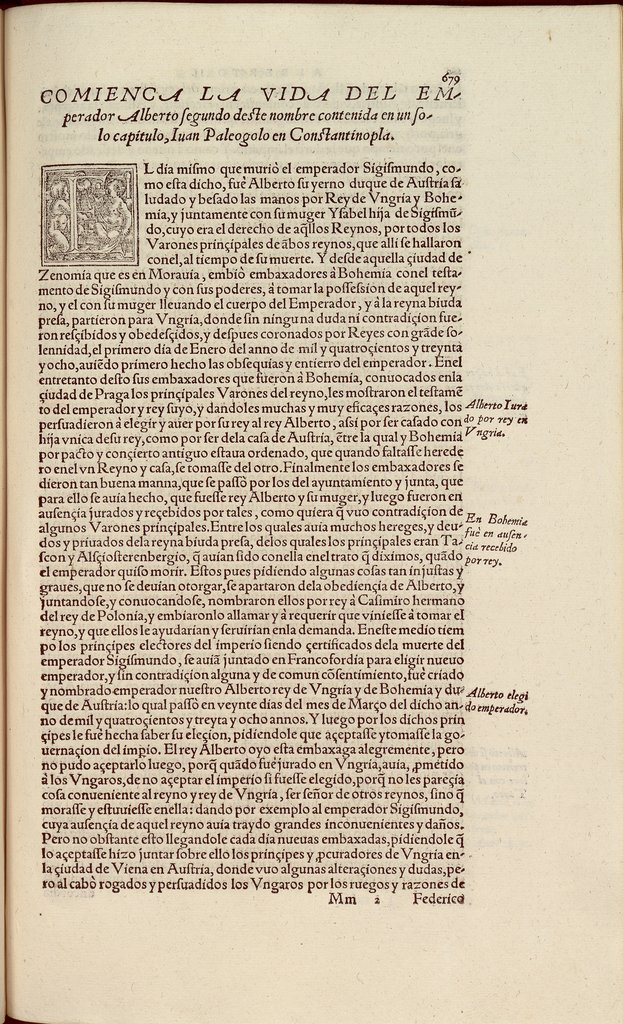 679
COMIENCA LA VIDA DEL EM-
perador Alberto segundo deste nombre contenida en un so-
lo capitulo, Iuan Paleogolo en Constantinopla.
EL día mismo que murió el emperador Sigismundo, co-
mo esta dicho, fuè Alberto su yerno duque de Austria sa
ludado y besado las manos por Rey de Vngria y Bohe-
mia, y juntamente con su muger Ysabel hija de Sigismū-
do, cuyo era el derecho de aq̃llos Reynos, por todos los
Varones prinçipales de ābos reynos, que alli se hallaron
con el, al tiempo de su muerte. Y desde aquella çiudad de
Zenomia que es en Morauia, embiò embaxadores à Bohemia con el testa-
mento de Sigismundo y con sus poderes, à tomar la possession de aquel rey-
no, y el con su muger lleuando el cuerpo del Emperador, y à la reyna biuda
presa, partieron para Vngria, donde sin ninguna duda ni contradiçion fue-
ron resçibidos y obedesçidos, y despues coronados por Reyes con grāde so-
lennidad, el primero día de Enero del anno de mil y quatroçientos y treynta
y ocho, auiēdo primero hecho las obsequias y entierro del emperador. En el
entretanto desto sus embaxadores que fueron à Bohemia, conuocados en la
çiudad de Praga los prinçipales Varones del reyno, les mostraron el testamē
to del emperador y rey suyo, y dandoles muchas y muy eficaçes razones, los
persuadieron à elegir y auer por su rey al rey Alberto, assi por ser casado con
hija vnica de su rey, como por ser de la casa de Austria, ētre la qual y Bohemia
por pacto y conçierto antiguo estaua ordenado, que quando faltasse herede
ro en el vn Reyno y casa, se tomasse del otro. Finalmente los embaxadores se
dieron tan buena manna, que se passò por los del ayuntamiento y junta, que
para ello se auia hecho, que fuesse rey Alberto y su muger, y luego fueron en
ausençia jurados y reçebidos por tales, como quiera q̃ vuo contradiçion de
algunos Varones prinçipales. Entre los quales auia muchos hereges, y deu-
dos y priuados dela reyna biuda presa, de los quales los prinçipales eran Ta-
scon y Alsçiosterenbergio, q̃ auian sido con ella en el trato q̃ diximos, quādo
el emperador quiso morir. Estos pues pidiendo algunas cosas tan injustas y
graues, que no se deuian otorgar, se apartaron dela obediençia de Alberto, y
juntandose, y conuocandose, nombraron ellos por rey à Casimiro hermano
del rey de Polonia, y embiaronlo allamar y à requerir que viniesse à tomar el
reyno, y que ellos le ayudarian y seruirian en la demanda. En este medio tiem
po los prinçipes electores del imperio siendo çertificados dela muerte del
emperador Sigismundo, se auiā juntado en Francofordia para eligir nueuo
emperador, y sin contradiçion alguna y de comun cōsentimiento, fuè criado
y nombrado emperador nuestro Alberto rey de Vngria y de Bohemia y du-
que de Austria: lo qual passò en veynte dias del mes de Março del dicho an-
no de mil y quatroçientos y treyta y ocho annos. Y luego por los dichos prin
çipes le fuè hecha saber su eleçion, pidiendole que açeptasse y tomasse la go-
uernaçion del impio. El rey Alberto oyo esta embaxaga alegremente, pero
no pudo açeptarlo luego, porq̃ quādo fuè jurado en Vngria, auia, pmetido
à los Vngaros, de no aceptar el imperio si fuesse elegido, porq̃ no les pareçia
cosa conueniente al reyno y rey de Vngria, ser señor de otros reynos, sino q̃
morasse y estuuiesse en ella: dando por exemplo al emperador Sigismundo,
cuya ausençia de aquel reyno auia traydo grandes inconuenientes y daños.
Pero no obstante esto llegandole cada dia nueuas embaxadas, pidiendole q̃
lo açeptasse hizo juntar sobre ello los prinçipes y, pcuradores de Vngria en-
la çiudad de Viena en Austria, donde vuo algunas alteraçiones y dudas, pe-
ro al cabò rogados y persuadidos los Vngaros por los ruegos y razones de
Mm 2 Federico
Alberto Iura
do por rey en
Vngria.
En Bohemia
fuè en ausen-
cia recebido
por rey.
Alberto elegi
do emperador.